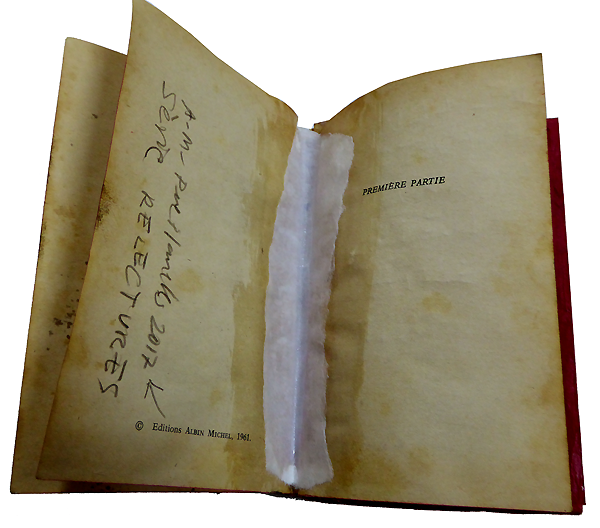 A-M- 2017
Série RELECTURES
© Editions ALBIN MICHEL, 1961.
PREMIÈRE PARTIE